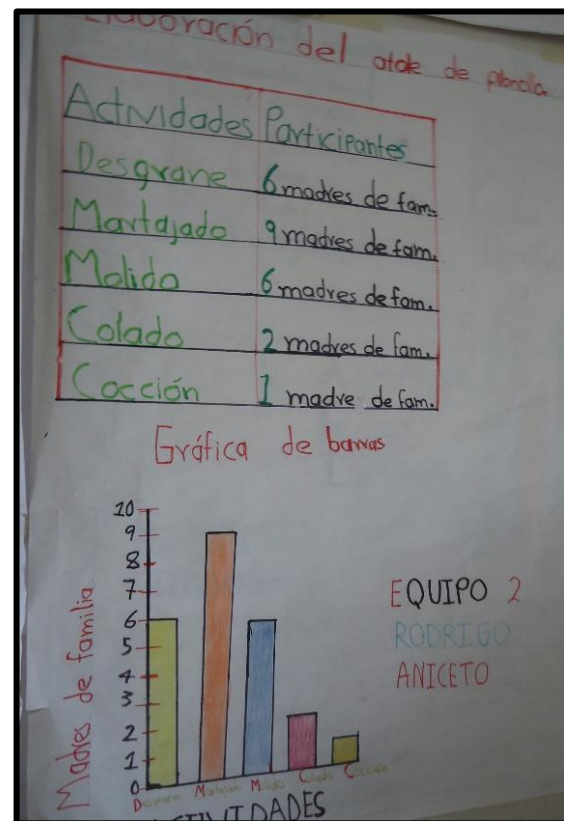 Elaboración del atole de planilla
Actividades Participantes
Desgrane 6 madres de fam.
Martajado 9 madres de fam.
Molido 6 madres de fam.
Colado 2 madres de fam.
Cocción 1 madre de fam.
Gráfica de barras
10
9
8
7
6
5
4
3
2
1
0
Madres de familia
Desgrane Martajado Molido Colado Cocción
ACTIVIDADES
EQUIPO 2
RODRIGO
ANICETO